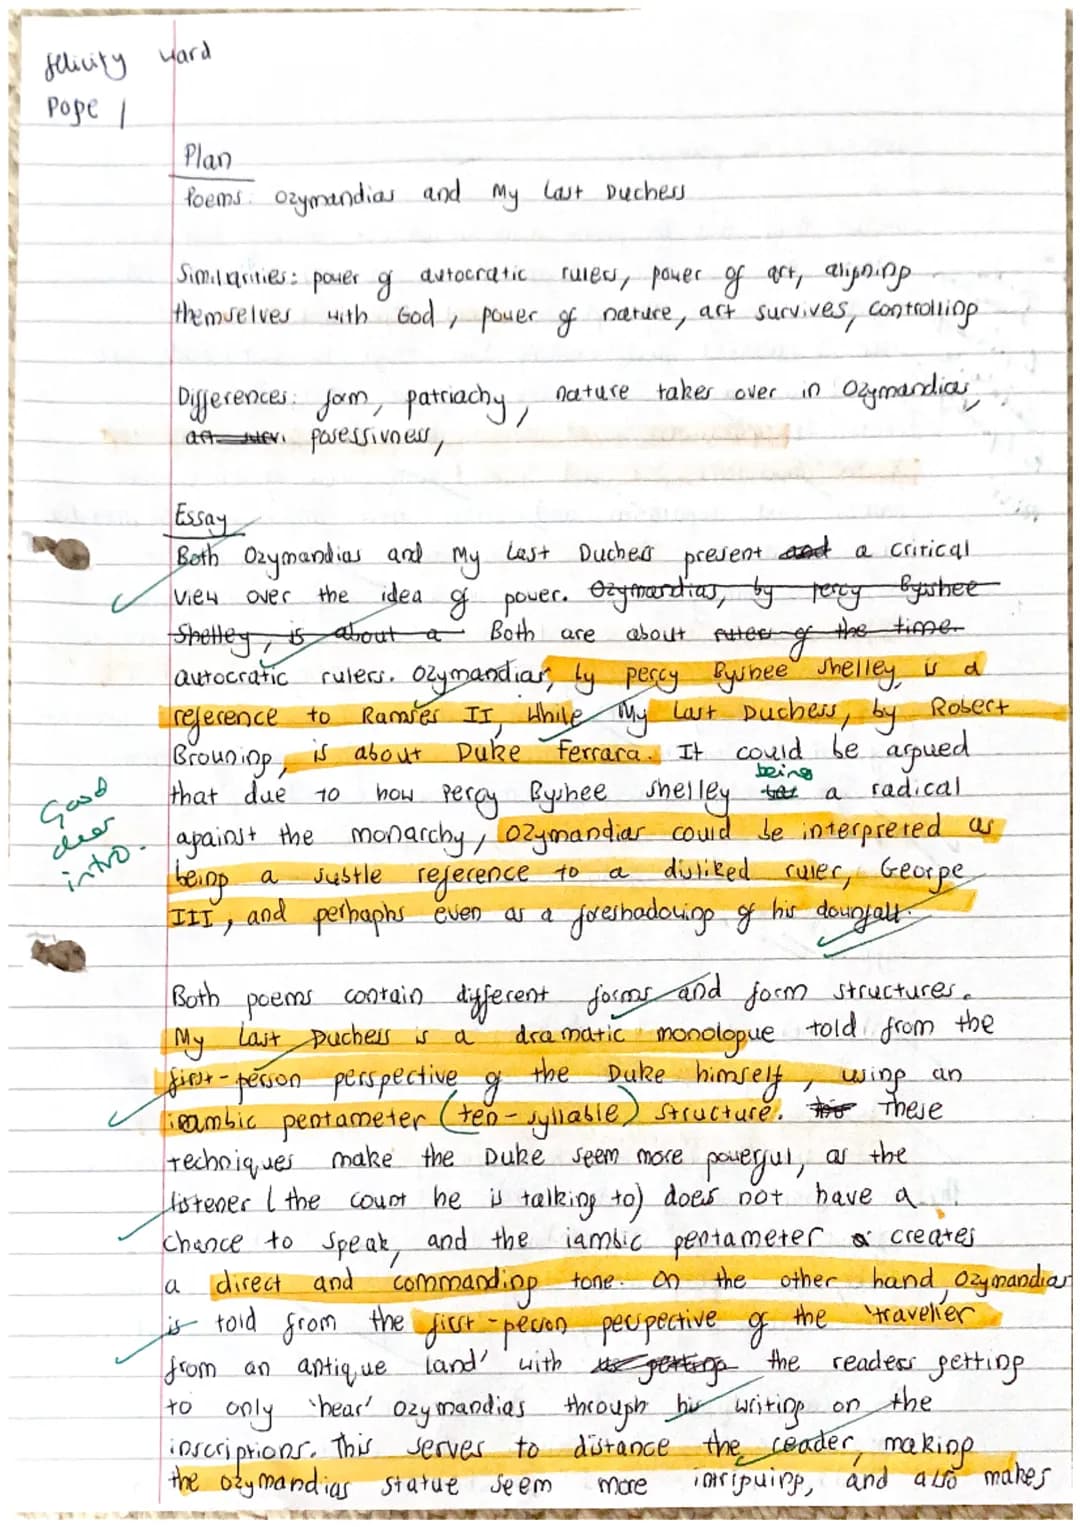 Felicity Ward
Page 1
Plan
Poems: Ozymandias and My Last Duchess
Similarities: power of autocratic rulers, power of art, aligning
themselves with God, power of nature, art survives, controlling
Differences: form, patriachy, nature takes over in Ozymandias,
posessivness,
Essay
Both Ozymandias and My Last Duchess present and a critical
view over the idea of power. Ozymandias, by Percy Bysshee
Shelley, is about a Both are about rulers of the time
autocratic rulers. Ozymandias, by Percy Bysshee Shelley, is a
reference to Ramses II, while My Last Duchess, by Robert
Browning, is about Duke Ferrara. It could be argued
being
that due to how Percy Byshee Shelley a radical
Good
clear
intro.
against the monarchy, Ozymandias could be interpreted as
being a subtle reference to a disliked ruler, George
III, and perhaphs even as a foreshadowing of his downfall.
Both poems contain different forms and form structures.
My Last Duchess is a dramatic monologue told from the
first-person perspective of the Duke himself, using an
iambic pentameter (ten-syllable) structure. These
techniques make the Duke seem more powerful, as the
listener (the count he is talking to) does not have a
chance to speak, and the iambic pentameter creates
a direct and commanding tone. On the other hand, Ozymandias
is told from the first-person perspective of the 'traveller
from an antique land' with getting the readers getting
to only 'hear' Ozymandias through his writing on the
inscriptions. This serves to distance the reader, making
the Ozymandias statue seem more intriguing, and also makes